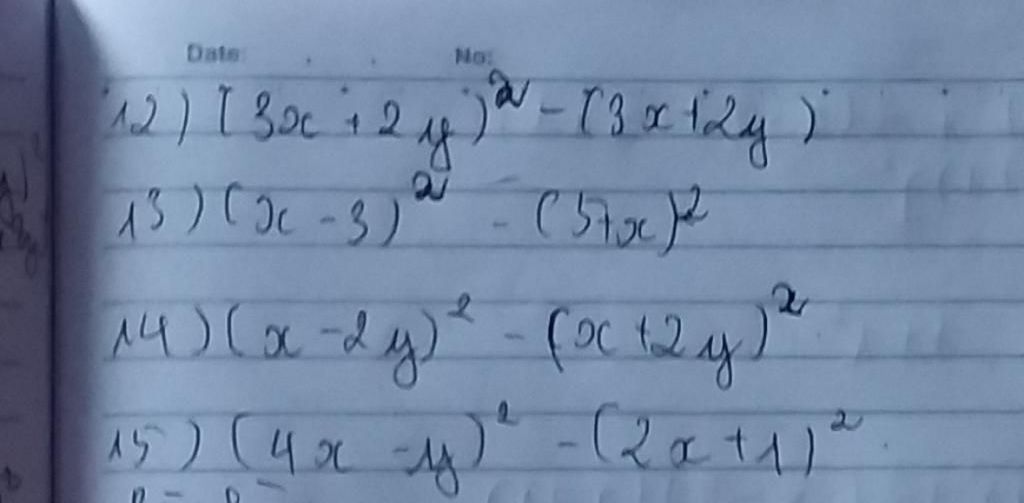 Date: No:
12) (3x + 2y)² - (3x + 2y)
13) (x - 3)² - (5+x)²
14) (x - 2y)² - (x + 2y)²
15) (4x - y)² - (2x + 1)²